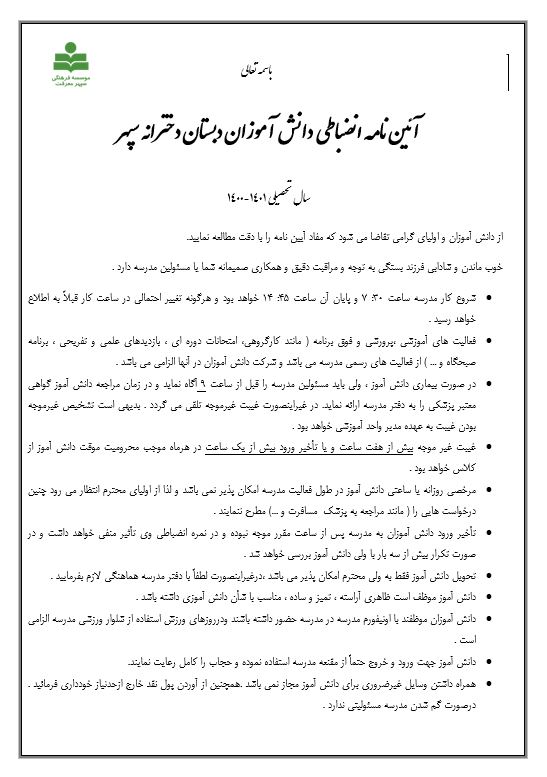 موسسه فرهنگی
سپهر معرفت
باسمه تعالی
آئین نامه انضباطی دانش آموزان دبستان دخترانه سپهر
سال تحصیلی ۱۴۰۱-۱۴۰۰
از دانش آموزان و اولیای گرامی تقاضا می شود که مفاد آیین نامه را با دقت مطالعه نمایید.
خوب ماندن و شادابی فرزند بستگی به توجه و مراقبت دقیق و همکاری صمیمانه شما با مسئولین مدرسه دارد .
● شروع کار مدرسه ساعت ۷:۳۰ و پایان آن ساعت ۱۴:۴۵ خواهد بود و هرگونه تغییر احتمالی در ساعت کار قبلاً به اطلاع
خواهد رسید .
● فعالیت های آموزشی ،پرورشی و فوق برنامه ( مانند کارگروهی، امتحانات دوره ای ، بازدیدهای علمی و تفریحی ، برنامه
صبحگاه و ... ) از فعالیت های رسمی مدرسه می باشد و شرکت دانش آموزان در آنها الزامی می باشد .
● در صورت بیماری دانش آموز ، ولی باید مسئولین مدرسه را قبل از ساعت ۹ آگاه نماید و در زمان مراجعه دانش آموز گواهی
معتبر پزشکی را به دفتر مدرسه ارائه نماید. در غیراینصورت غیبت غیرموجه تلقی می گردد . بدیهی است تشخیص غیرموجه
بودن غیبت به عهده مدیر واحد آموزشی خواهد بود .
● غیبت غیر موجه بیش از هفت ساعت و یا تأخیر ورود بیش از یک ساعت در هرماه موجب محرومیت موقت دانش آموز از
کلاس خواهد بود .
● مرخصی روزانه یا ساعتی دانش آموز در طول فعالیت مدرسه امکان پذیر نمی باشد و لذا از اولیای محترم انتظار می رود چنین
درخواست هایی را ( مانند مراجعه به پزشک مسافرت و ...) مطرح ننمایند .
● تأخیر ورود دانش آموزان به مدرسه پس از ساعت مقرر موجه نبوده و در نمره انضباطی وی تأثیر منفی خواهد داشت و در
صورت تکرار بیش از سه بار با ولی دانش آموز بررسی خواهد شد .
● تحویل دانش آموز فقط به ولی محترم امکان پذیر می باشد ،درغیراینصورت لطفاً با دفتر مدرسه هماهنگی لازم بفرمایید .
● دانش آموز موظف است ظاهری آراسته ، تمیز و ساده ، مناسب با شأن دانش آموزی داشته باشد .
● دانش آموزان موظفند با اونیفورم مدرسه در مدرسه حضور داشته باشند ودرروزهای ورزش استفاده از شلوار ورزشی مدرسه الزامی
است .
● دانش آموز جهت ورود و خروج حتماً از مقنعه مدرسه استفاده نموده و حجاب را کامل رعایت نمایند.
● همراه داشتن وسایل غیرضروری برای دانش آموز مجاز نمی باشد .همچنین از آوردن پول نقد خارج ازحدنیاز خودداری فرمائید .
درصورت گم شدن مدرسه مسئولیتی ندارد .